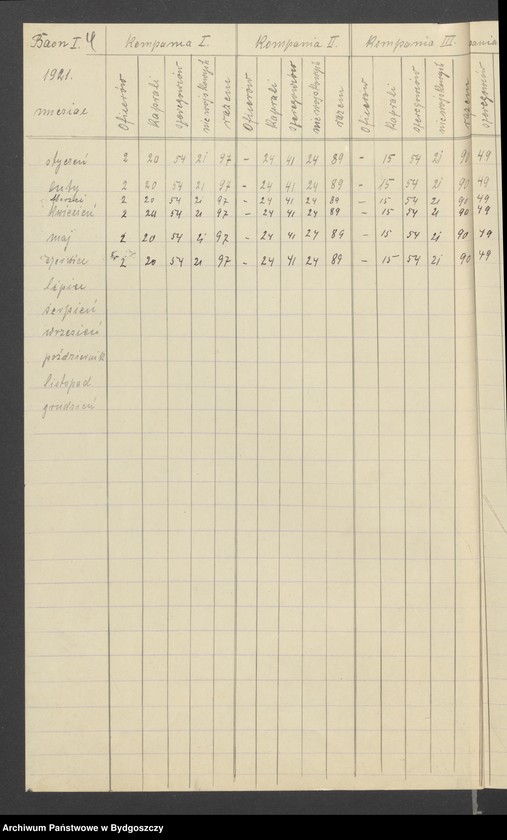 Baon I. 4 Kompania I. Kompania II. Kompania III. pania
1921.
miesiąc Oficerów Kaprali szeregowców niewojskowych razem Oficerów Kaprali szeregowców niewojskowych razem Oficerów Kaprali szeregowców niewojskowych razem szeregowców
styczeń 2 20 54 21 97 - 24 41 24 89 - 15 54 21 90 49
luty 2 20 54 21 97 - 24 41 24 89 - 15 54 21 90 49
2 20 54 21 97 - 24 41 24 89 - 15 54 21 90 49
kwiecień 2 20 54 21 97 - 24 41 24 89 - 15 54 21 90 49
maj 2 20 54 21 97 - 24 41 24 89 - 15 54 21 90 49
2 20 54 21 97 - 24 41 24 89 - 15 54 21 90 49
lipiec
sierpień
wrzesień
październik
listopad
grudzień
Archiwum Państwowe w Bydgoszczy